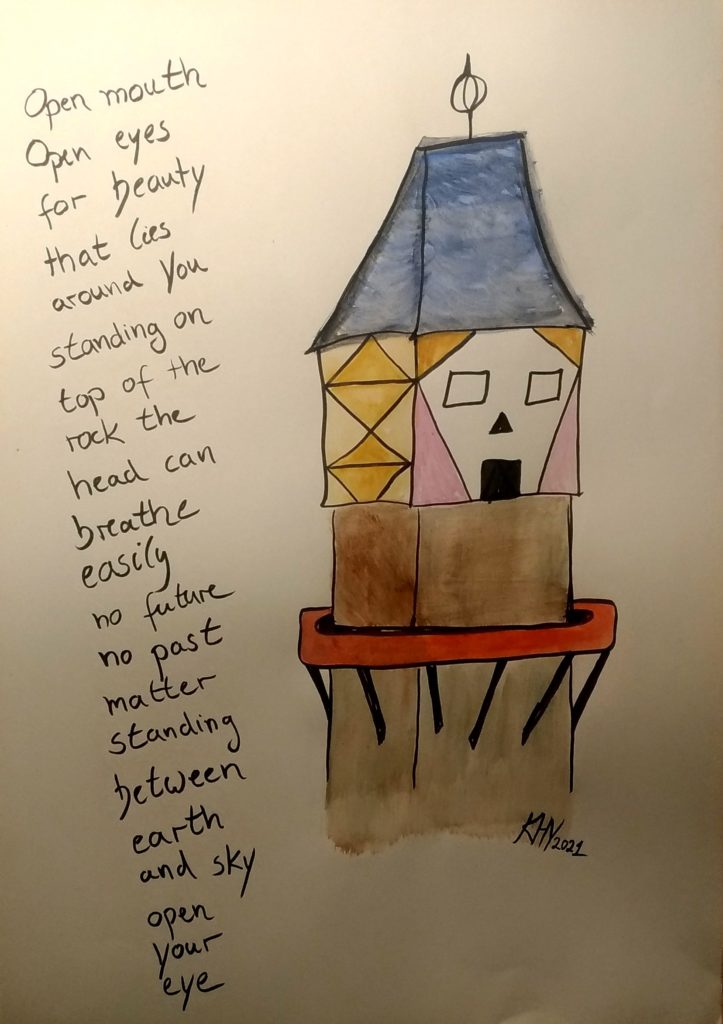 Open mouth
Open eyes
for beauty
that lies
around you
standing on
top of the
rock the
head can
breathe
easily
no future
no past
matter
standing
between
earth
and sky
open
your
eye
KHN 2021